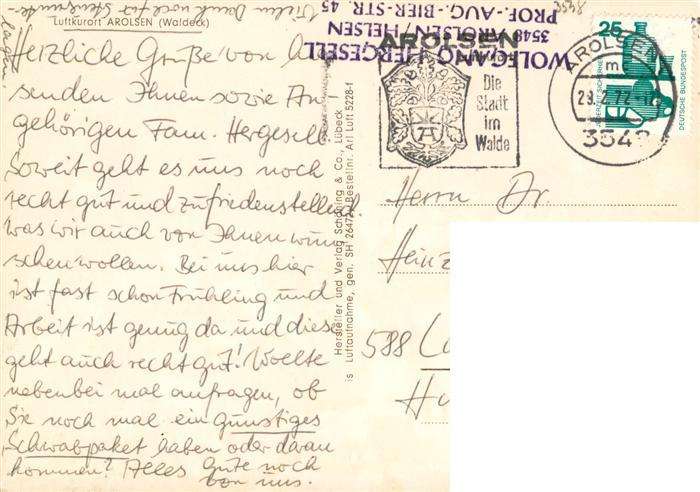 Vielen Dank noch für Spenderunter-
lagen
Luftkurort AROLSEN (Waldeck)
Herzliche Grüße von hier
senden Ihnen sowie An
gehörigen Fam. Hergesell
Soweit geht es uns noch
recht gut und zufriedenstellend
was wir auch von Ihnen wün
schen wollen. Bei uns hier
ist fast schon Frühling und
Arbeit ist genug da und diese
geht auch recht gut! Wollte
nebenbei mal anfragen, ob
Sie noch mal ein günstiges
Schwabpaket haben oder daran
kommen? Alles Gute noch
von uns.
Hersteller und Verlag Schöning & Co., Lübeck
Luftaufnahme, gen. SH 26472 Bestellnr. Arl Luft 5228 f
is
WOLFGANG HERGESELL
3548 AROLSEN-HELSEN
PROF.-AUG.-BIER-STR. 45
3538
AROLSEN
Die
Stadt
im
Walde
AROLSEN
m
29.2.72
3548
25
DEUTSCHE BUNDESPOST
Herrn Dr.
Heinz
588